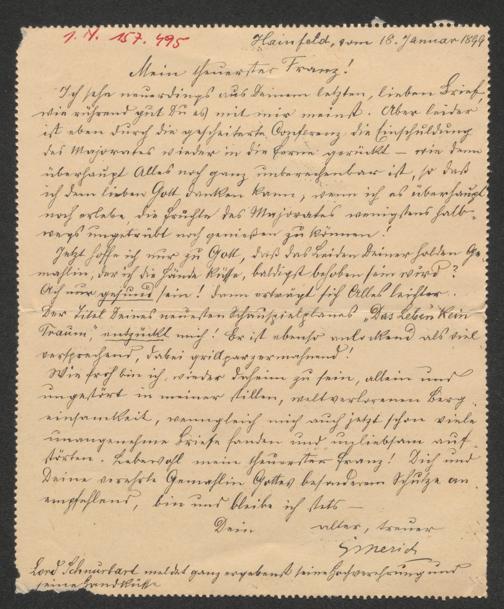 I. N. 157.495
Hainfeld, vom 18. Januar 1899
Mein theuerster Franz!
Ich sehe neuerdings aus Deinem letzten, lieben Brief
wie rührend gut Du es mit mir meinst. Aber leider
ist eben durch die gescheiterte Conferenz die Einschuldung
des Majorates wieder in die Ferne gerückt – wie denn
überhaupt Alles noch ganz unberechenbar ist, so daß
ich dem lieben Gott danken kann, wenn ich es überhaupt
noch erlebe die Früchte des Majorates wenigstens halb-
wegs ungetrübt noch genießen zu können!
Jetzt hoffe ich nur zu Gott, daß das Leiden Deiner holden Ge-
mahlin, der ich die Hände küsse, baldigst behoben sein wird?
Ach nur gesund sein! dann erträgt sich Alles leichter.
Der Titel Deines neuesten Schauspielplanes „Das Leben kein
Traum", entzückt mich! Er ist ebenso anlockend als viel
versprechend, dabei grillparzermahnend!
Wie froh bin ich wieder daheim zu sein, allein und
ungestört in meiner stillen, weltverlorenen Berg
einsamkeit, wenngleich mich auch jetzt schon viele
unangenehme Briefe fanden und unliebsam auf-
störten. Lebewohl mein theuerster Franz! Dich und
Deine verehrte Gemahlin Gottes besonderem Schutze an
empfehlend, bin und bleibe ich stets –
Dein alter, treuer
Emerich
Lord Schnurbart meldet ganz ergebenst seine Hochverehrung und
seine Handküsse